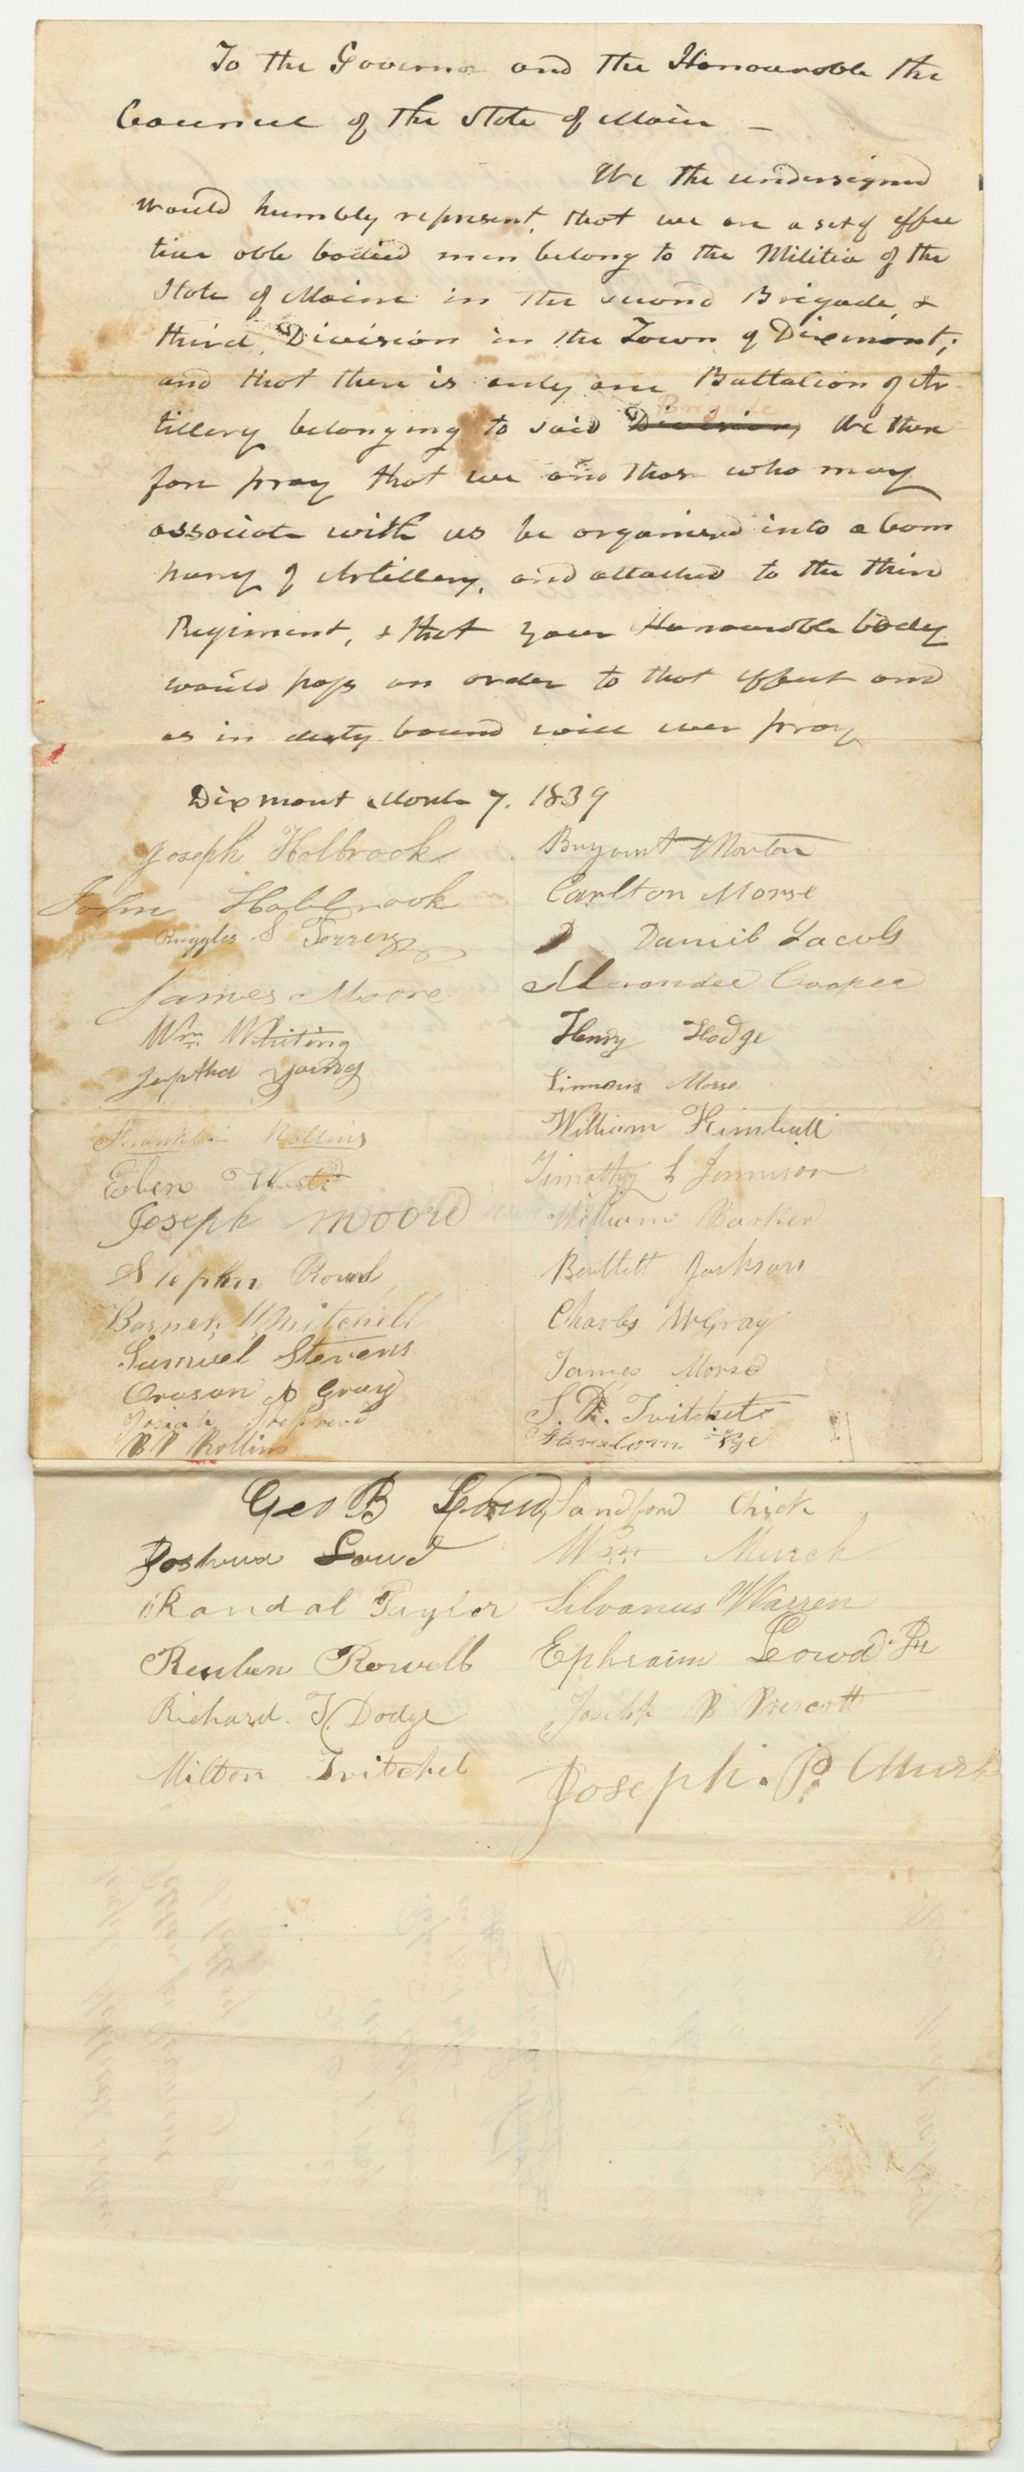 To the Governor and the Honourable the
Council of the State of Maine —
We the undersigned
would humbly represent, that we are a set of effec
tive able bodied men belong to the Militia of the
State of Maine in the second Brigade, &
third, Division in the Town of Dixmont;
and that there is only one Battalion of Ar
Brigade
tillery belonging to said Division, We there
fore pray that we and those who may
associate with us be organised into a Com
pany of Artillery, and attached to the third
Regiment, & that your Honourable body
would pass an order to that effect and
as in duty bound will ever pray
Dixmont March 7. 1839
Joseph Holbrook
Bryant Morton
John Holbrook
Carlton Morse
Ruggles S Torrey
Daniel Jacobs
James Moore
Alexander Cooper
Wm Whiting
Henry Hodge
Jeptha Young
Linneus Morse
Franklin Rollins
William Kimball
Eben West
Timothy L Jennison
Joseph Moore
William Barker
Stephen Rowel
Bartlett Jackson
Barnet Mitchell
Charles McGray
Samuel Stevens
James Morse
Orason Gray
S. D. Twitchel
Josiah
Absalom Pye
B P Rollins
Geo B Loud
Sandford Chick
Joshua Loud
Wm Murch
Randal Taylor
Silvanus Warren
Reuben Rowell
Ephraim Lowd Jr
Richard T. Dodge
Joseph B Prescott
Milton Twitchel
Joseph. P. Murch